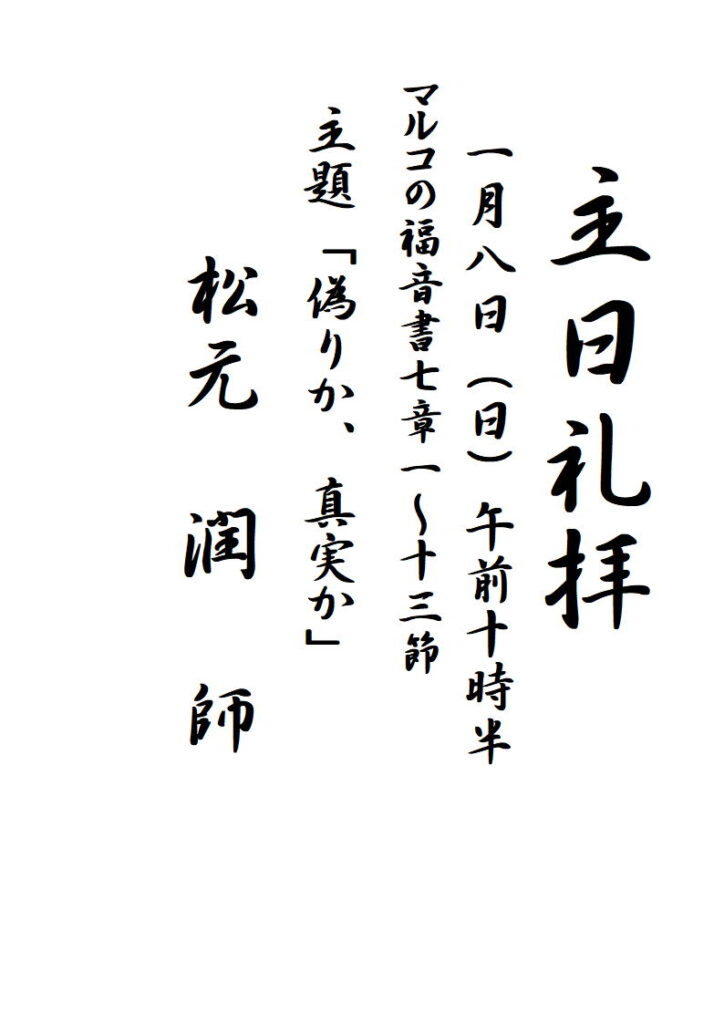 主日礼拝
一月八日（日）午前十時半
マルコの福音書七章一～十三節
主題「偽りか、真実か」
松元 潤 師